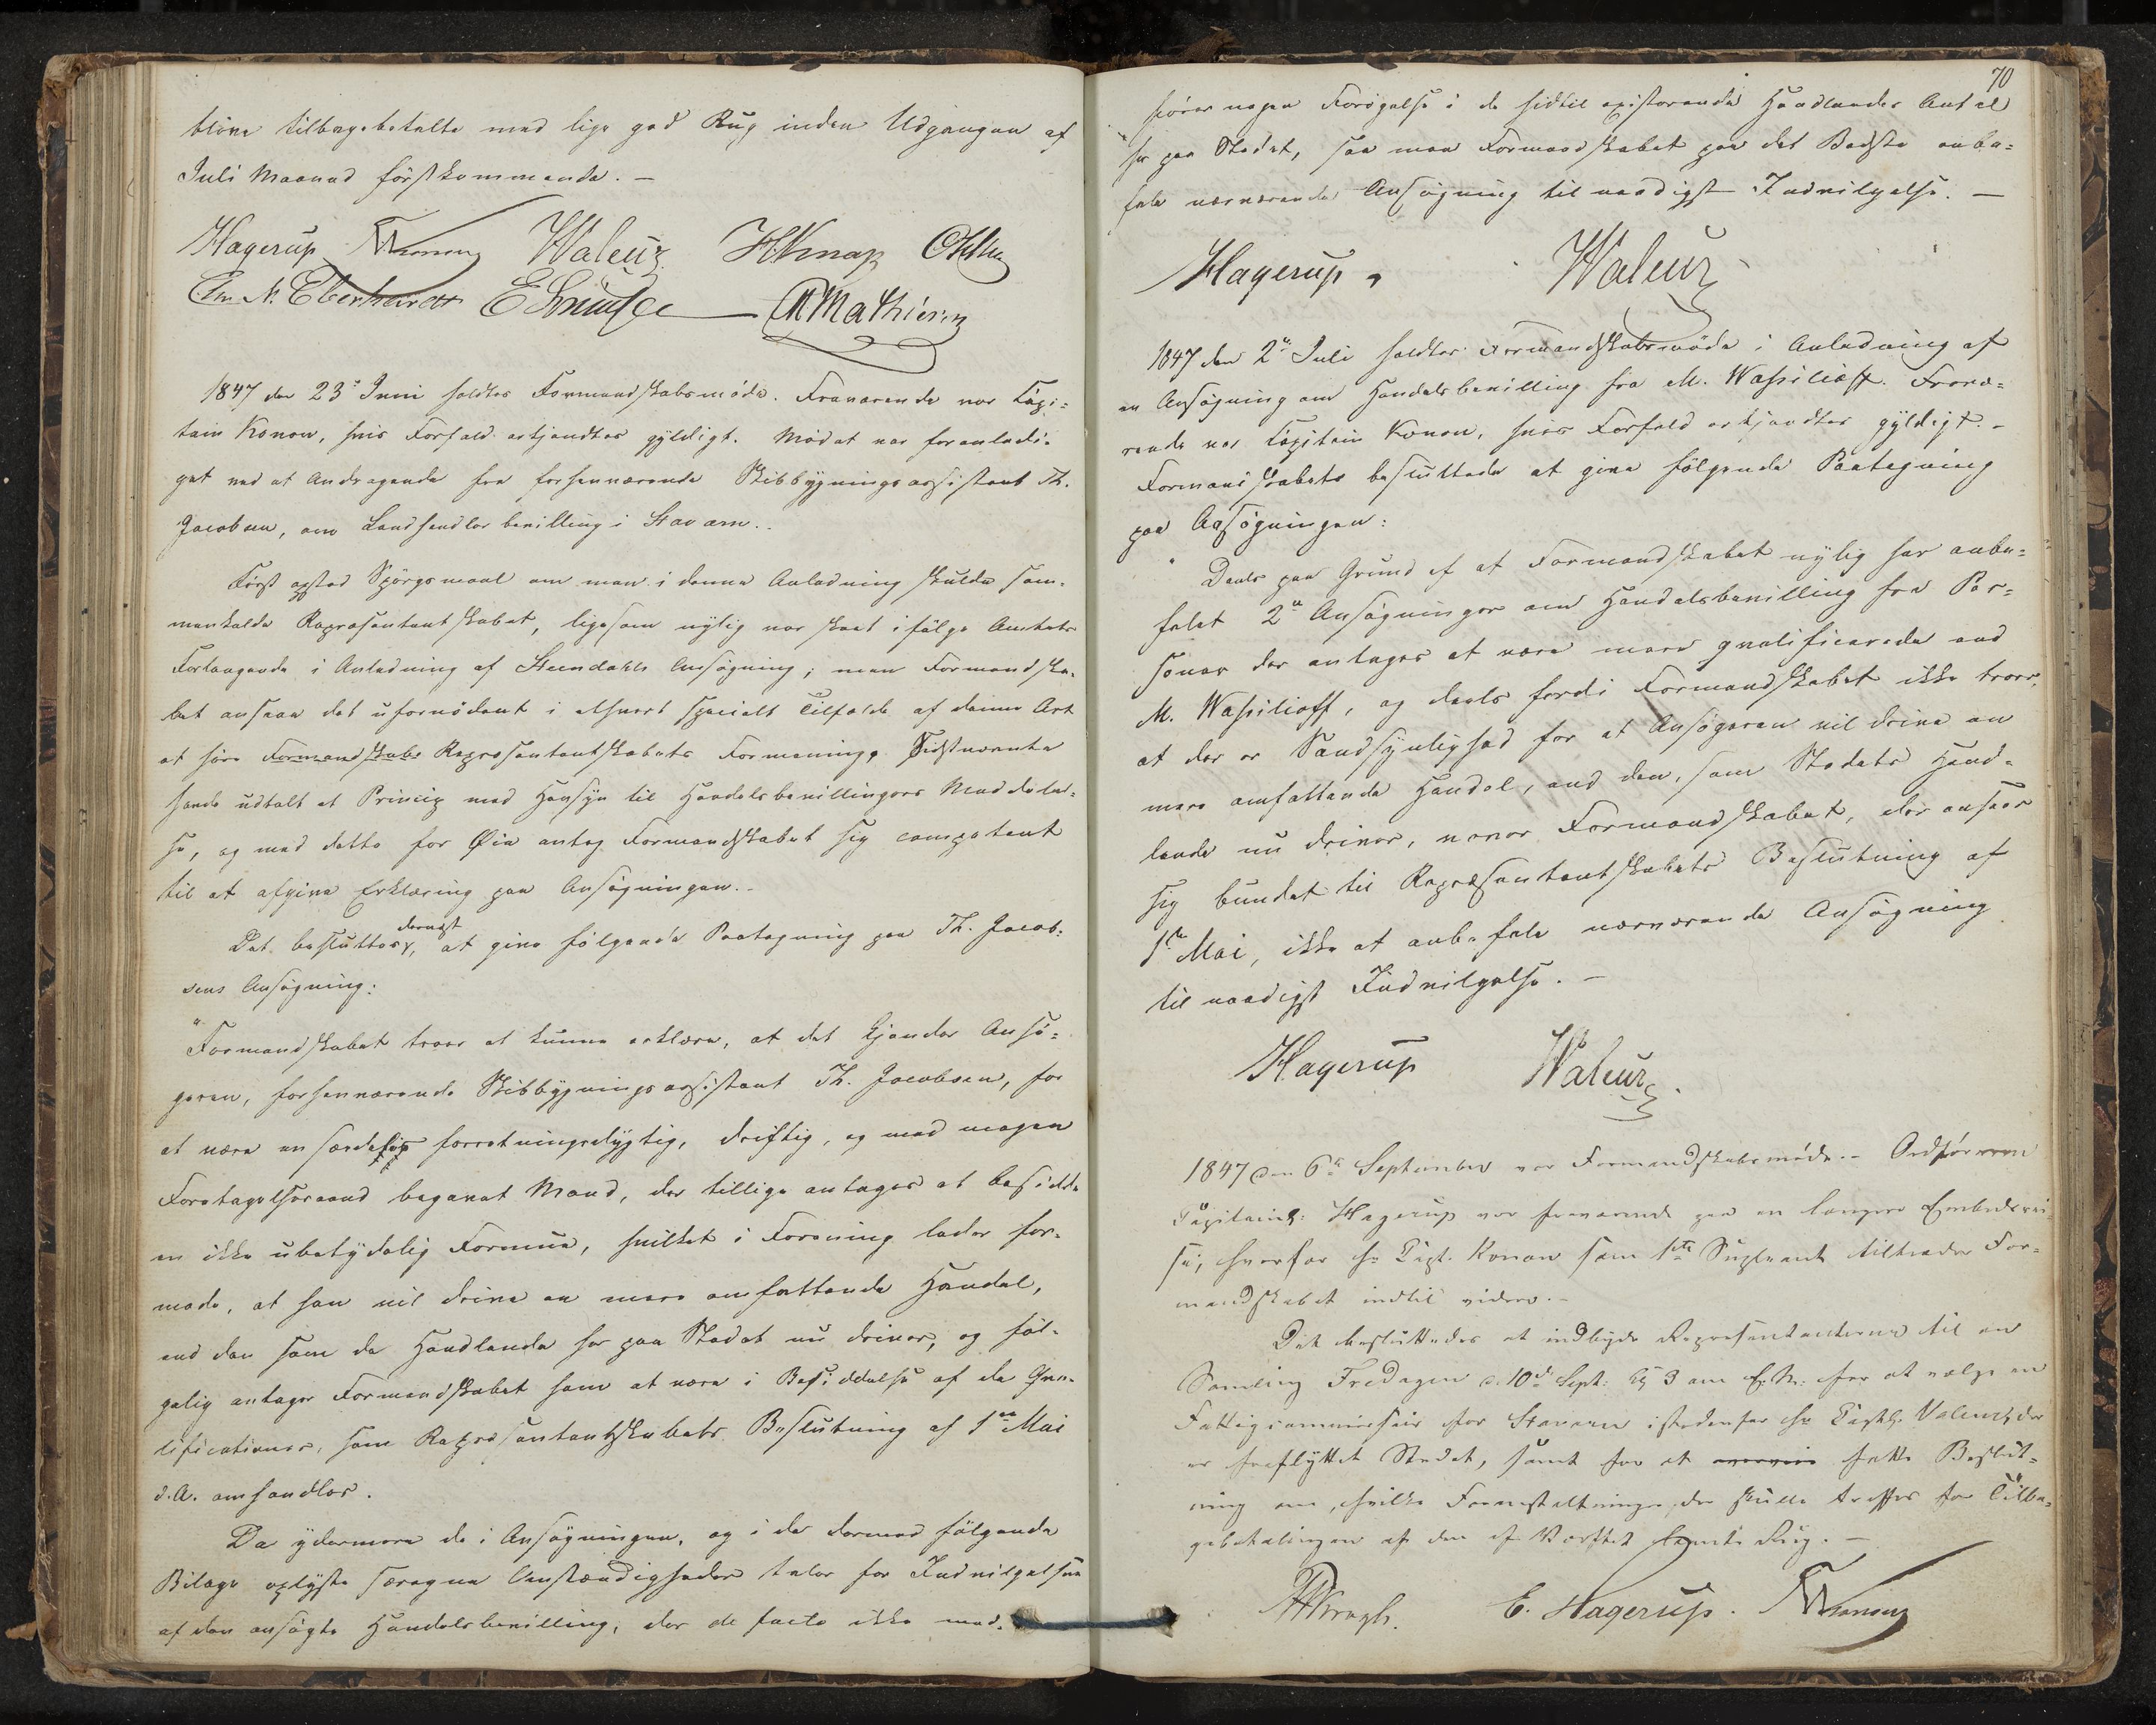 blive tilbagebetalte med lige god Rug inden Udgangen af
Juli Maaned förstkommende. —
Hagerup Konow Waleur H Knap
Em. N. Eberhardt E Knudse Mathiesen
1847 den 23de Juni holdtes Formandskabsmöde. Fraværende var Capi-
tain Konow, hvis Forfald erkjendtes gyldigt. Mödet var foranledi-
get ved et Andragende fra forhenværende Skibbygningsassistent Th.
Jacobsen, om Landhandlerbevilling i Staværn.
Först opstod Spörgsmaal om man i denne Anledning skulde sam-
menkalde Repræsentantskabet, ligesom nylig var skeet ifölge Amtets
Forlangende i Anledning af Steendahls Ansögning; men Formandska-
bet ansaae det ufornödent i ethvert specielt Tilfælde af denne Art
at höre Formandskabs Repræsentantskabets Formening. Sidstnævnte
havde udtalt et Princip med Hensyn til Handelsbevillingers Meddelel-
se, og med dette for Öie antog Formandskabet sig competent
til at afgive Erklæring paa Ansögningen. —
Det besluttes dernæst, at give fölgende Paategning paa Th. Jacob-
sens Ansögning:
"Formandskabet troer at kunne erklære, at det kjender Ansö-
geren, forhenværende Skibbygningsassistent Th. Jacobsen, for
at være en særdeles forretningsdygtig, driftig, og med megen
Foretagelsesaand begavet Mand, der tillige antages at besidde
en ikke ubetydelig Formue, hvilket i Forening lader for-
mode, at han vil drive en mere omfattende Handel,
end den som de Handlende her paa Stedet nu driver, og föl-
gelig antager Formandskabet ham at være i Besiddelse af de Qva-
lificationer, som Repræsentantskabets Beslutning af 1ste Mai
d. A. omhandler.
Da ydermere de i Ansögningen, og i de dermed fölgende
Bilage oplyste særegne Omstændigheder taler for Indvilgelsen
af den ansögte Handelsbevilling, der de facto ikke med-
70
förer nogen Forögelse i de hidtil existerende Handlendes Antal
her paa Stedet, saa maa Formandskabet paa det Bedste anbe-
fale nærværende Ansögning til naadigst Indvilgelse. —
Hagerup. Waleur
1847 den 2de Juli holdtes Formandskabsmöde i Anledning af
en Ansögning om Handelsbevilling fra M. Wassilioff. Fravæ-
rende var Capitain Konow, hvis Forfald erkjendtes gyldigt. —
Formandskabets besluttede at give fölgende Paategning
paa Ansögningen:
"Deels paa Grund af at Formandskabet nylig har anbe-
falet 2de Ansögninger om Handelsbevilling fra Per-
soner der antages at være mere qvalificerede end
M. Wassilioff, og deels fordi Formandskabet ikke troer,
at der er Sandsynlighed for at Ansögeren vil drive en
mere omfattende Handel, end den, som Stedets Hand-
lende nu driver, vover Formandskabet, der anseer
sig bundet til Repræsentantskabets Beslutning af
1ste Mai, ikke at anbefale nærværende Ansögning
til naadigst Indvilgelse. —
Hagerup Waleur
1847 den 6te September var Formandskabsmöde. — Ordföreren
Capitainl: Hagerup var fraværende paa en længere Embedsrei-
se, hvorfor Hr Capt. Konow som 1ste Supleant tiltræder For-
mandskabet indtil videre. —
Det besluttedes at indbyde Repræsentanterne til en
Samling Fredagen d. 10de Sept: Kl 3 om E. M. for at vælge en
Fattigcommissair for Stavern istedenfor Hr Captl. Valeur, der
er fraflyttet Stedet, samt for at fatte Beslut-
ning om, hvilke Foranstaltninger, der skulle træffes for Tilba-
gebetalingen af den af Værftet laante Rug. —
Krogh. E. Hagerup. Konow